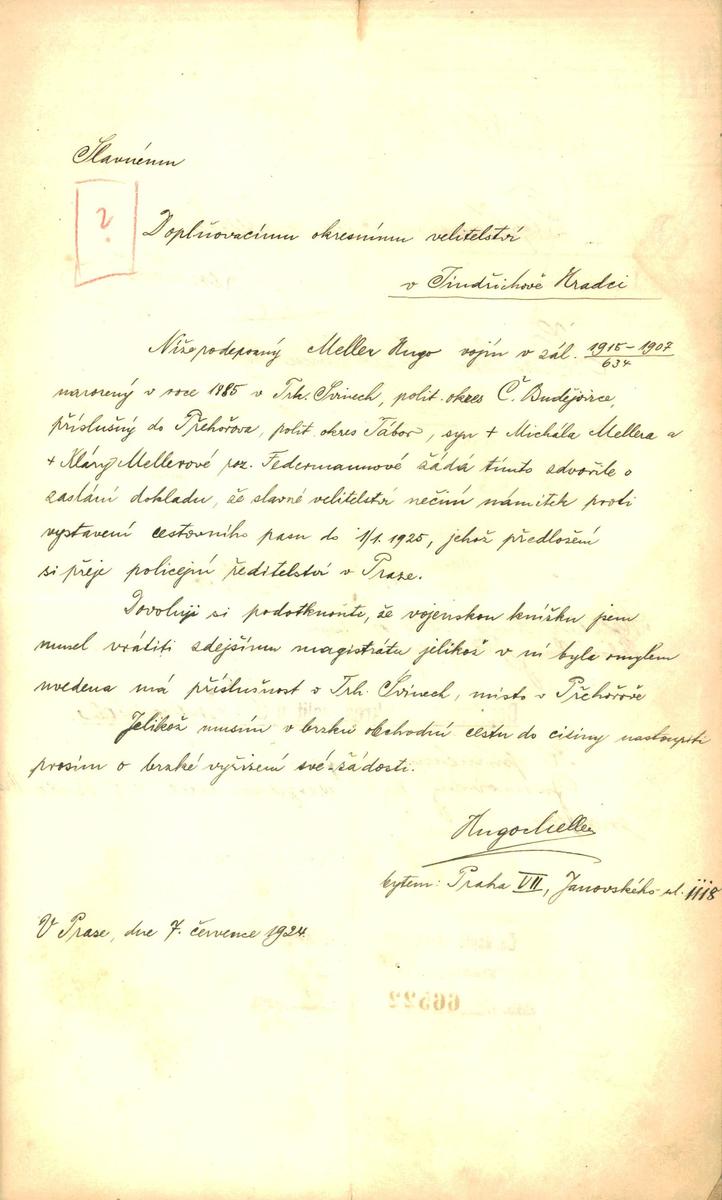 Slavnému
?
Doplňovacímu okresnímu velitelství
v Jindřichově Hradci
Níže podepsaný Meller Hugo vojín v zál. 1915-1907
634
narozený v roce 1885 v Trh. Svinech, polit. okres Č. Budějovice,
příslušný do Přehořova, polit. okres Tábor, syn + Michála Mellera a
+ Kláry Mellerové roz. Federmannové žádá tímto zdvořile o
zaslání dokladu, že slavné velitelství nečiní námitek proti
vystavení cestovního pasu do 1/1. 1925, jehož předložení
si přeje policejní ředitelství v Praze.
Dovoluji si podotknouti, že vojenskou knížku jsem
musel vrátiti zdejšímu magistrátu jelikož v ní byla omylem
uvedena má příslušnost v Trh. Svinech, místo v Přehořově
Jelikož musím v brzku obchodní cestu do ciziny nastoupiti
prosím o brzké vyřízení své žádosti.
Hugo Meller
bytem: Praha VII, Janovského ul. 1118
V Praze, dne 7. července 1924.
66522